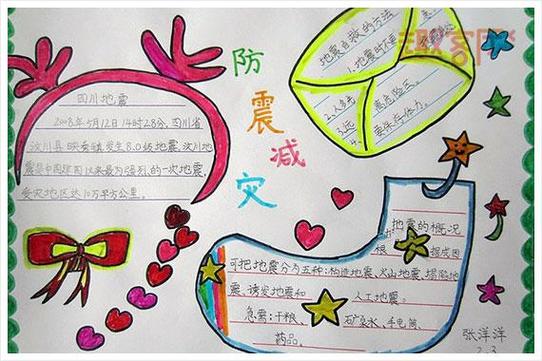 防
震
减
灾
四川地震
2008年5月12日14时28分,四川省
汶川县映秀镇发生8.0级地震,汶川地
震是中国建国以来最为强烈的一次地震,
受灾地区达10万平方公里。
地震自救的方法
1.地震时不要
2.人多
3.远离危险区。
4.要保存体力。
地震的概况
根据成因
可把地震分为五种:构造地震、火山地震、塌陷地
震、诱发地震和人工地震。
急需:干粮、矿泉水、手电筒、
药品。
张洋洋
2.3
趣客网